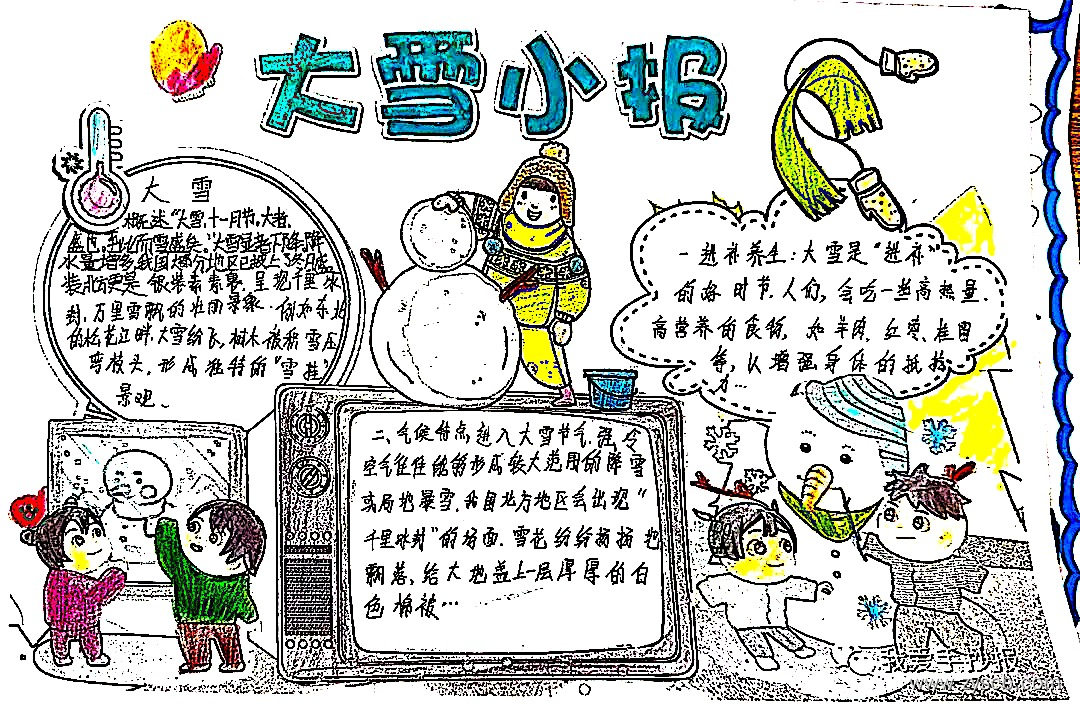 大雪小报
大 雪
概述"大雪,十一月节,大者,
盛也,至此而雪盛矣."大雪意味着下降,降
水量增多,我国大部分地区已披上冬日盛
装,北方更是银装素裹,呈现千里冰
封,万里雪飘的壮阔景象.例如东北
的松花江畔,大雪纷飞,树木被积雪压
弯枝头,形成独特的"雪挂"
景观.
一 进补养生:大雪是"进补"
的好时节,人们,会吃一些高热量.
高营养的食物,如羊肉,红枣,桂圆
等,以增强身体的抵抗
力…
二、气候特点,进入大雪节气,强冷
空气往往能够形成较大范围的降雪
或局地暴雪,我国北方地区会出现"
千里冰封"的场面.雪花纷纷扬扬地
飘落,给大地盖上一层厚厚的白
色棉被…
我爱手抄报